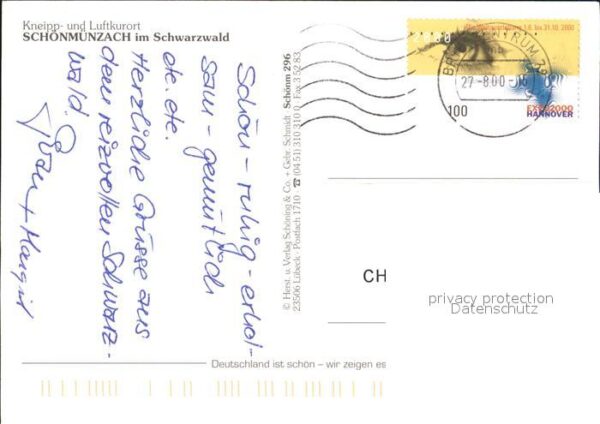 Kneipp- und Luftkurort
SCHÖNMÜNZACH im Schwarzwald
Schön - ruhig - erhol-
sam - gemütlich
etc. etc.
Herzliche Grüsse aus
dem reizvollen Schwarz-
wald.
+ Margrit
© Herst. u. Verlag Schöning & Co. + Gebr. Schmidt
23506 Lübeck · Postfach 1710 ☎ (04 51) 310 310
Schönm 296
Fax 3 52 83
1.6. bis 31.10. 2000
27.-8.00.-16
100
EXPO2000
HANNOVER
CH
privacy protection
Datenschutz
Deutschland ist schön – wir zeigen es